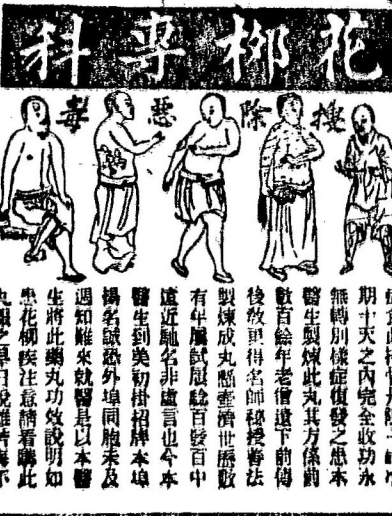 花柳專科
搜除惡毒
期十天之內完全收功永
無轉別樣症復發之患本
醫生製煉此丸其方係前
數百餘年老僧遺下前傳
後敎更得名師秘授法
製煉成丸懸壺濟世歷數
有年屢試屢騐百發百中
遠近馳名非虛言也今本
醫生到美初掛招牌本埠
揚名誠恐外埠同胞未及
週知難來就醫是以本醫
生將此藥丸功效說明如
患花柳疾注意請看購此